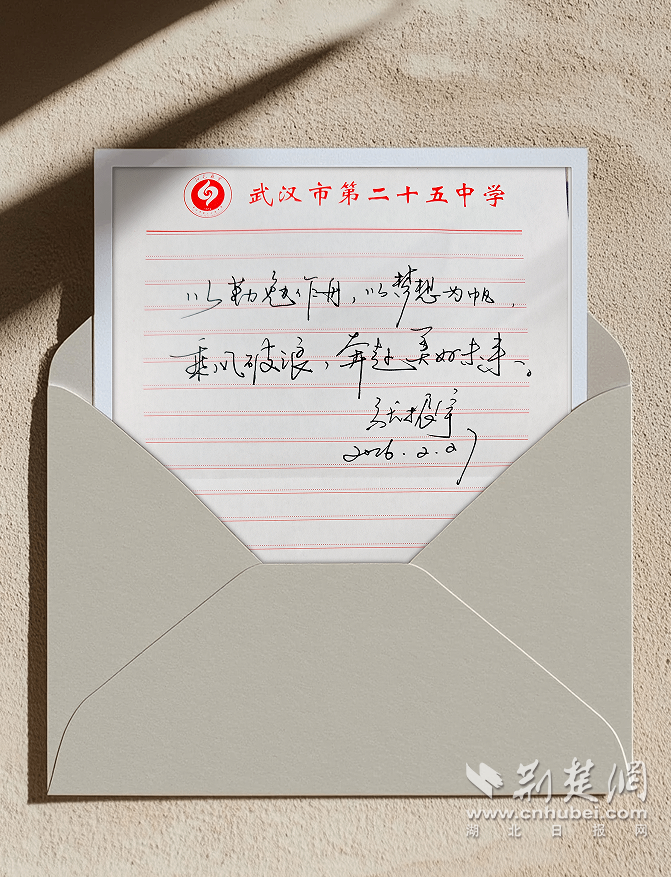 武汉市第二十五中学
以勤勉作舟，以梦想为帆，
乘风破浪，奔赴美好未来。
振宇
2026.2.27
荆楚网
www.cnhubei.com
湖北日报网